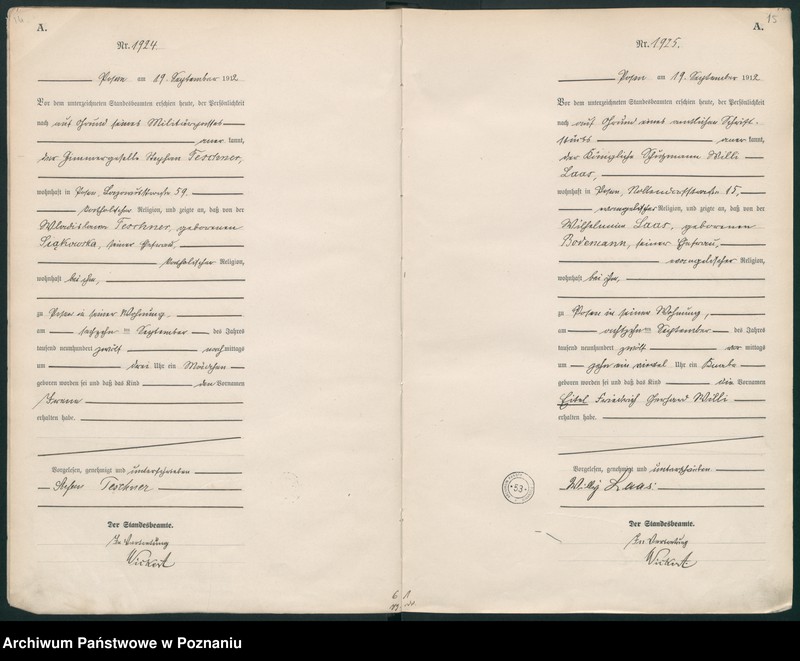 16
A.
Nr. 1924.
Posen am 19. September 1912
Vor dem unterzeichneten Standesbeamten erschien heute, der Persönlichkeit
nach auf Grund seines Militärpasses
aner kannt,
der Zimmergeselle Stephan Teschner,
wohnhaft in Posen, 59.
katholischer Religion, und zeigte an, daß von der
Wladislawa Teschner, geborenen
seiner Ehefrau,
katholischer Religion,
wohnhaft bei ihm,
zu Posen in seiner Wohnung,
am ten September des Jahres
tausend neunhundert zwölf nachmittags
um drei Uhr ein Mädchen
geboren worden sei und daß das Kind den Vornamen
Irene
erhalten habe.
Vorgelesen, genehmigt und unterschrieben
Stefan Teschner
Der Standesbeamte.
In Vertretung
Wickert
15
A.
Nr. 1925.
Posen am 19. September 1912
Vor dem unterzeichneten Standesbeamten erschien heute, der Persönlichkeit
nach auf Grund eines amtlichen Schrift-
stücks aner kannt,
der Königliche Schutzmann Willi
Laas,
wohnhaft in Posen, 15,
evangelischer Religion, und zeigte an, daß von der
Wilhelmine Laas, geborenen
Bodemann, seiner Ehefrau,
evangelischer Religion,
wohnhaft bei ihm,
zu Posen in seiner Wohnung,
am achtzehn ten September des Jahres
tausend neunhundert zwölf vor mittags
um zehn ein viertel Uhr ein Knabe
geboren worden sei und daß das Kind die Vornamen
Eitel Friedrich Gerhard Willi
erhalten habe.
Vorgelesen, genehmigt und unterschrieben
Willy Laas
53
Der Standesbeamte.
In Vertretung
Wickert
Archiwum Państwowe w Poznaniu